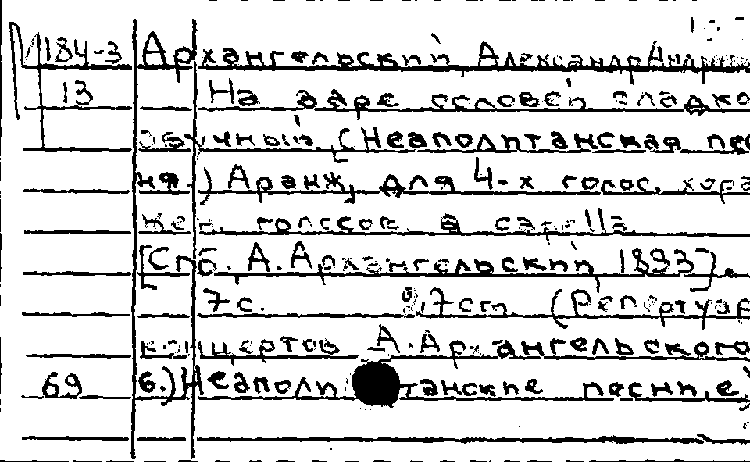 М184-3 Архангельский, Александр Андрее
13 На заре соловей сладко
звучный. (Неаполитанская пес
ня.) Аранж. для 4-х голос. хора
жен. голосов a capella.
[Спб. А. Архангельский, 1893].
7 с. 7 cm. (Репертуар
концертов А. Архангельского
69 6.) Неаполитанские песни, е)